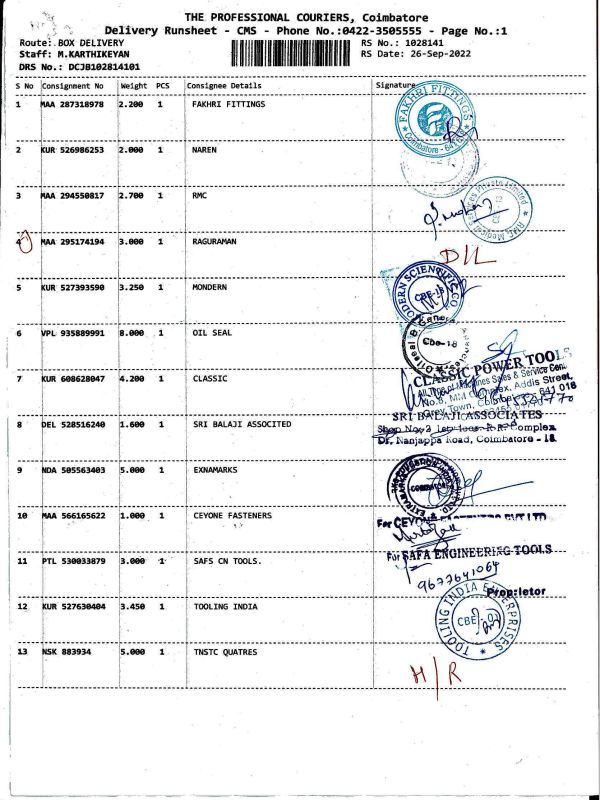 THE PROFESSIONAL COURIERS, Coimbatore
Delivery Runsheet - CMS - Phone No.:0422-3505555 - Page No.:1
Route: BOX DELIVERY RS No.: 1028141
Staff: M.KARTHIKEYAN RS Date: 26-Sep-2022
DRS No.: DCJB102814101
S No Consignment No Weight PCS Consignee Details Signature
1 MAA 287318978 2.200 1 FAKHRI FITTINGS
FAKHRI FITTINGS
Coimbatore - 641
2 KUR 526986253 2.000 1 NAREN
3 MAA 294550817 2.700 1 RMC
RMC Medical Services Private Limited
4 MAA 295174194 3.000 1 RAGURAMAN
D/L
5 KUR 527393590 3.250 1 MONDERN
MODERN SCIENTIFIC CO
CBE-18
6 VPL 935889991 8.000 1 OIL SEAL
Cbe-18
7 KUR 608628047 4.200 1 CLASSIC
CLASSIC POWER TOOLS
All Types of Machines Sales & Service Cen
No.8, MM Complex, Addis Street,
Grey Town, Coimbatore - 641 018
8 DEL 528516240 1.600 1 SRI BALAJI ASSOCITED
SRI BALAJI ASSOCIATES
Shop No. 2 Complex
Dr. Nanjappa Road, Coimbatore - 18.
9 NDA 505563403 5.000 1 EXNAMARKS
COIMBATORE
10 MAA 566165622 1.000 1 CEYONE FASTENERS
For CEYONE FASTENERS PVT LTD
11 PTL 530033879 3.000 1 SAFS CN TOOLS.
For SAFA ENGINEERING TOOLS
9677641064
Proprietor
12 KUR 527630404 3.450 1 TOOLING INDIA
TOOLING INDIA ENTERPRISES
CBE
13 NSK 883934 5.000 1 TNSTC QUATRES
H/R